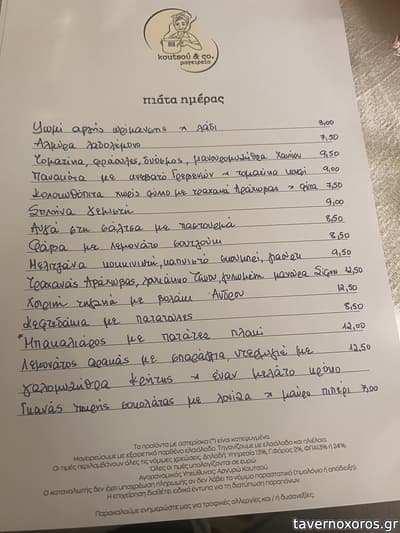 κουτσού & co.
μαγειρείο
πιάτα ημέρας
Ψωμί αργής ωρίμανσης & λάδι 3,00
Αλμύρα λαδολέμονο 7,50
Τοματίνια, φράουλες, δυόσμος, Χανίων 9,50
Παντζάρια με ανεβατό Γρεβενών & καρύδι 9,00
Κολοκυθόπιτα χωρίς φύλλο με τραχανά Αράχωβας & φέτα 7,50
Σπλήνα γεμιστή 9,00
Αυγά στη σάλτσα με παστουρμά 8,50
Φάβα με λεμονάτο σουτζούκι 8,50
Μελιτζάνα κοκκινιστή, καπνιστό σκουμπρί, 9,50
Τραχανάς Αράχωβας, μανούρα Σίφνου 12,50
Χοιρινή τηγανιά με βολάκι Άνδρου 12,50
Κεφτεδάκια με πατατούλες 8,50
*Μπακαλιάρος με πατάτες πλακί 12,00
Λεμονάτος αρακάς με σπαράγγια, με 12,50
γαλομυζήθρα Κρήτης & έναν μελάτο κρόκο
Γκανάς πικρής σοκολάτας με & μαύρο πιπέρι 7,00
Τα προϊόντα με αστερίσκο (*) είναι κατεψυγμένα.
Μαγειρεύουμε με εξαιρετικό παρθένο ελαιόλαδο. Τηγανίζουμε με ελαιόλαδο και ηλιέλαιο.
Οι τιμές περιλαμβάνουν όλες τις νόμιμες χρεώσεις. Δηλαδή: Υπηρεσία 13%, Γ.Φόρος 2%, ΦΠΑ 13% ή 24%.
Όλες οι τιμές υπολογίζονται σε ευρώ.
Αγορανομικός Υπεύθυνος: Αργυρώ Κουτσού
Ο καταναλωτής δεν έχει υποχρέωση πληρωμής αν δεν λάβει το νόμιμο παραστατικό (τιμολόγιο ή απόδειξη).
Η επιχείρηση διαθέτει ειδικά έντυπα για τη διατύπωση παραπόνων.
Παρακαλούμε ενημερώστε μας για τροφικές αλλεργίες και / ή δυσανεξίες.
tavernoxoros.gr